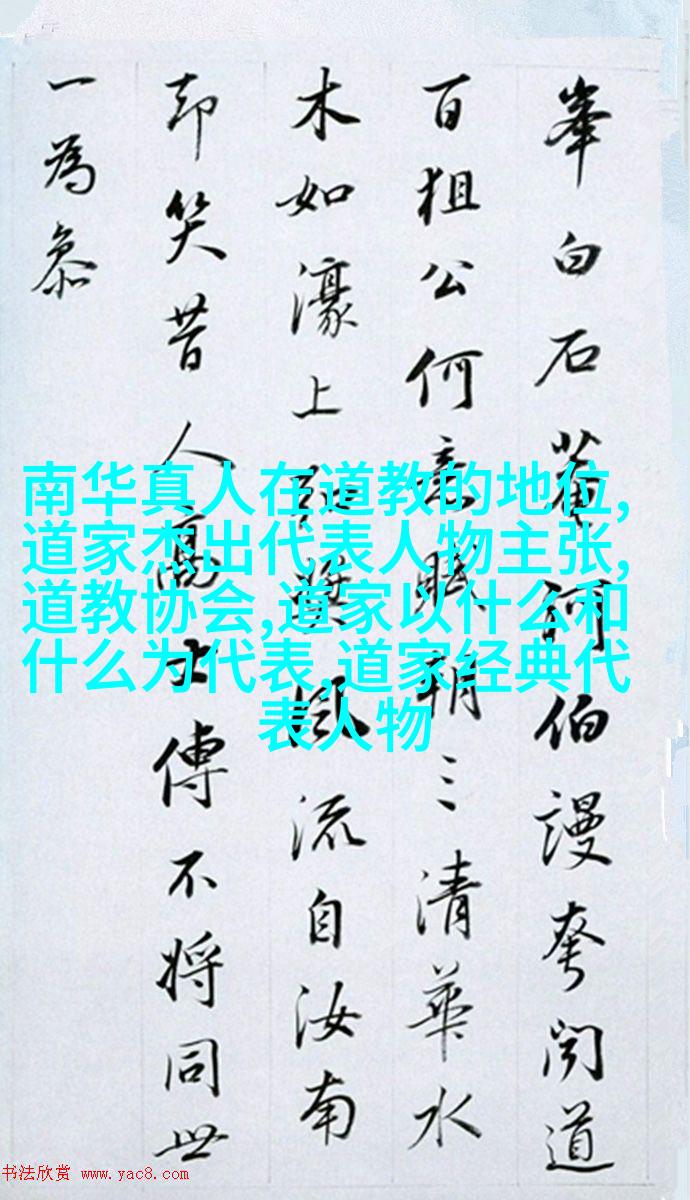 峯白石菴河伯謾夸聞道
百狙公何意眩朝三清華水
木如濠上題奬風流自汝南
却笑昔人高士傳不將同世
一為叅
南华真人在道教的地位,
道家杰出代表人物主张,
道教协会,道家以什么和
什么为代表,道家经典代
表人物
书法欣赏 www.yac8.com